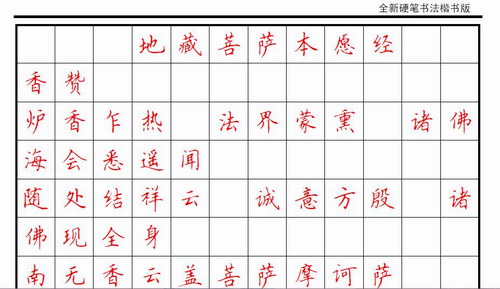 全新硬笔书法楷书版
地藏菩萨本愿经
香赞
炉香乍热 法界蒙熏 诸佛
海会悉遥闻
随处结祥云 诚意方殷 诸
佛现全身
南无香云盖菩萨摩诃萨